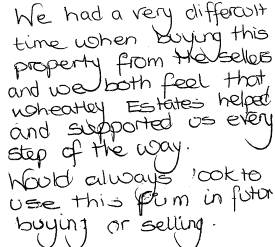 We had a very difficult
time when buying this
property from the sellers
and we both feel that
Wheatley Estates helped
and supported us every
step of the way.
Would always look to
use this firm in futur
buying or selling.